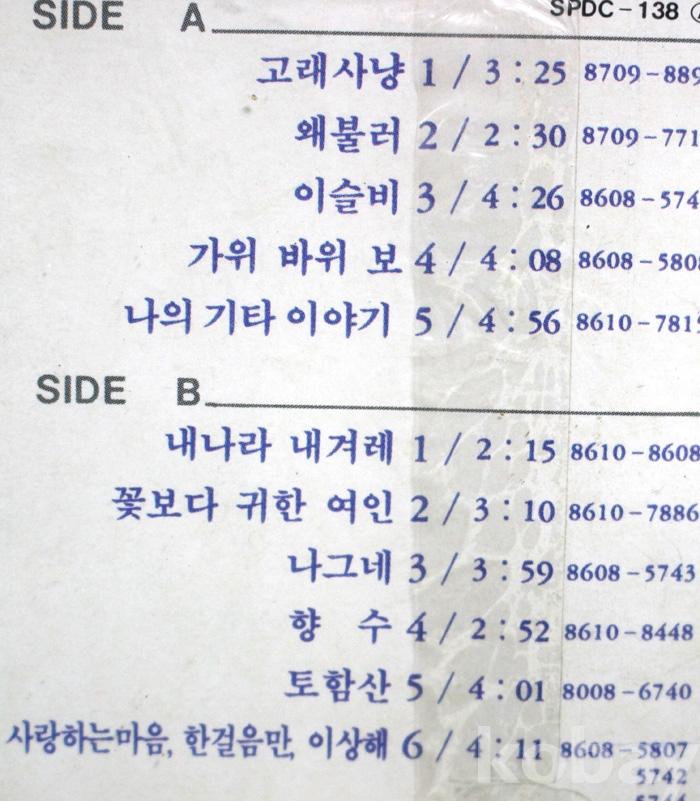 SIDE A SPDC-138
고래사냥 1 / 3 : 25 8709-889
왜불러 2 / 2 : 30 8709-771
이슬비 3 / 4 : 26 8608-574
가위 바위 보 4 / 4 : 08 8608-580
나의 기타 이야기 5 / 4 : 56 8610-781
SIDE B
내나라 내겨레 1 / 2 : 15 8610-8608
꽃보다 귀한 여인 2 / 3 : 10 8610-7886
나그네 3 / 3 : 59 8608-5743
향 수 4 / 2 : 52 8610-8448
토함산 5 / 4 : 01 8008-6740
사랑하는마음, 한걸음만, 이상해 6 / 4 : 11 8608-5807
5742